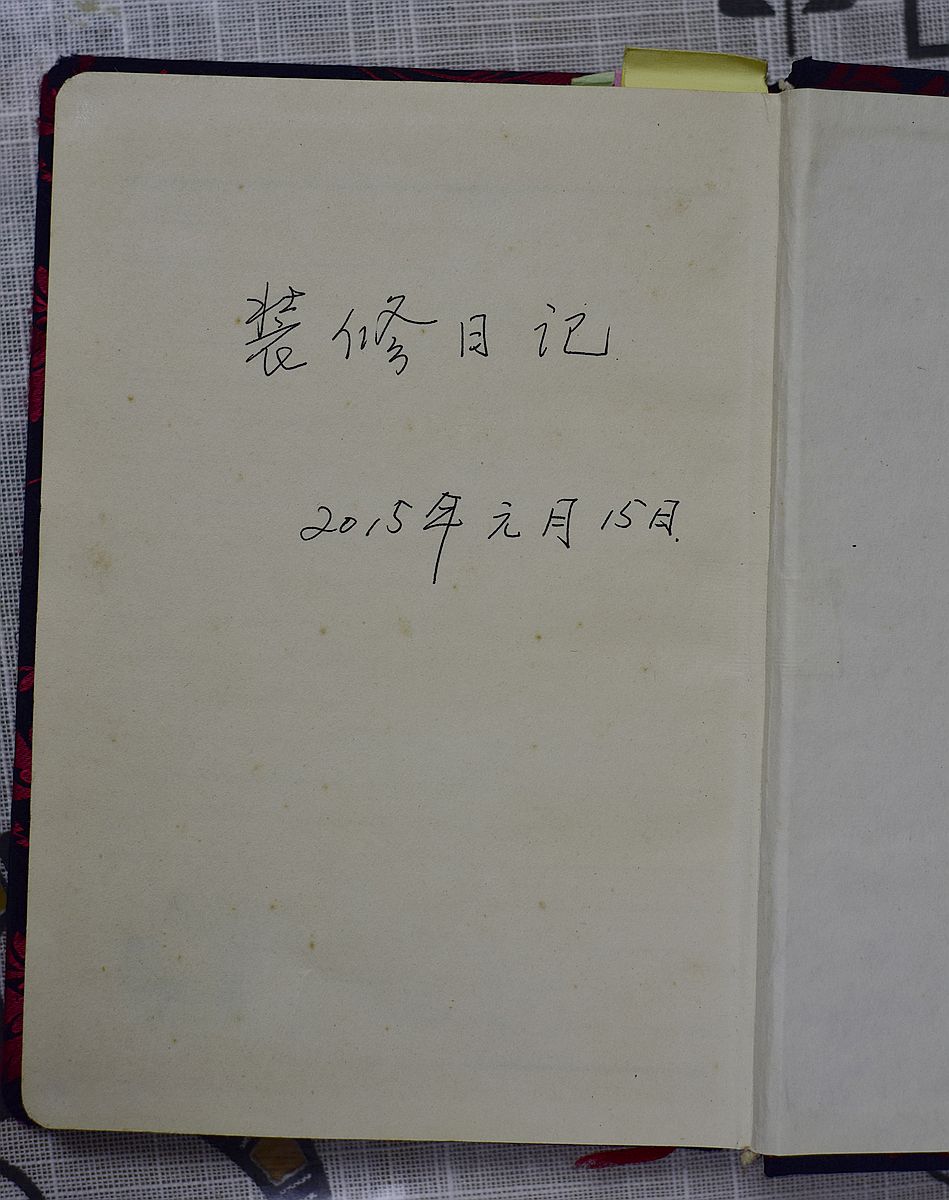 装修日记
2015年元月15日.